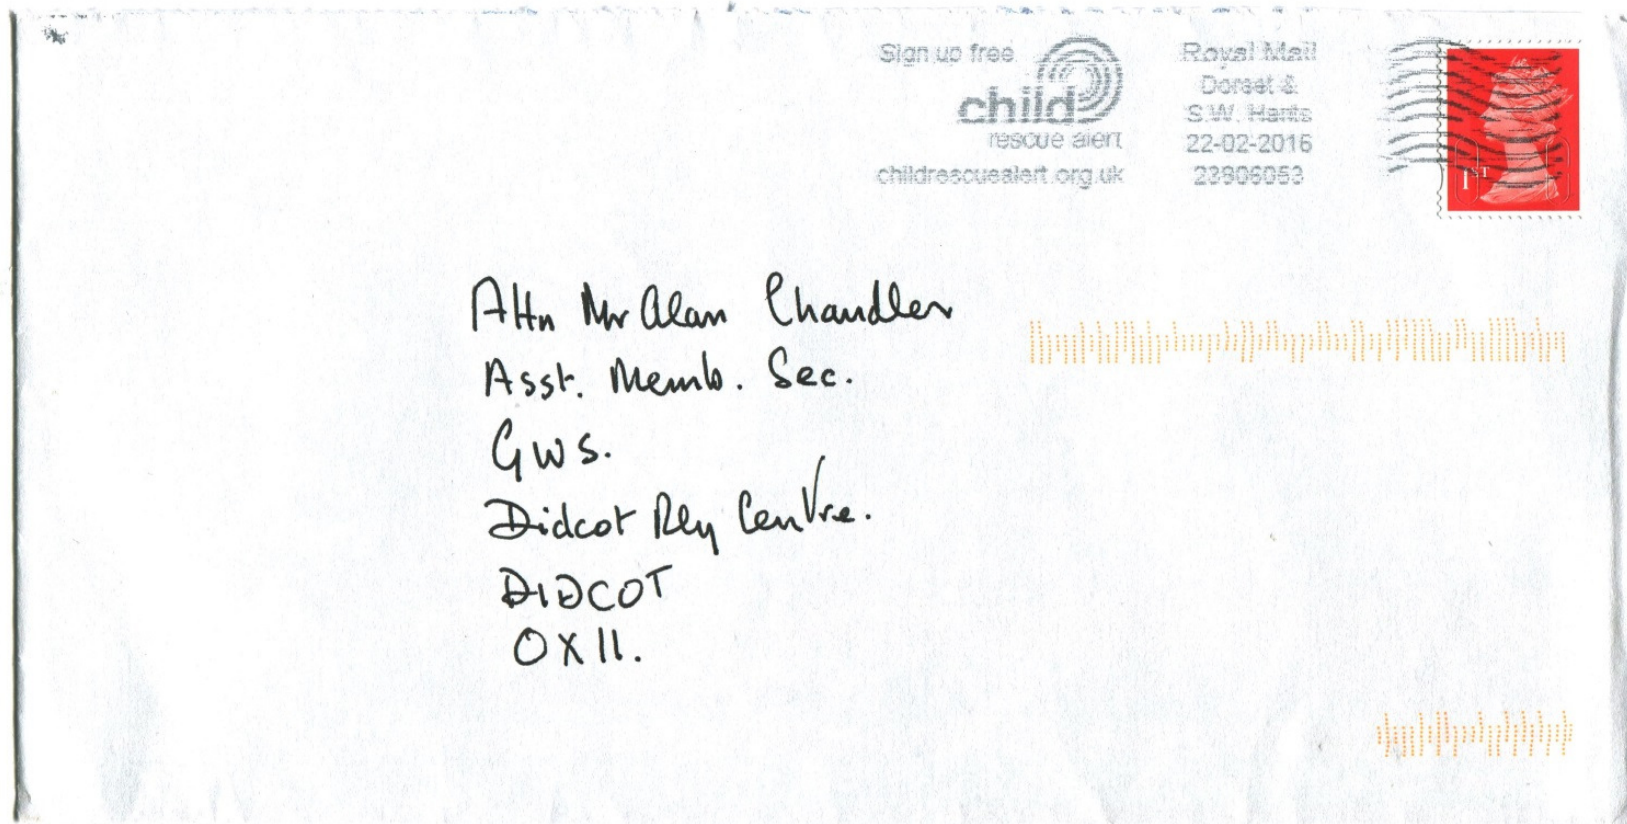 Sign up free
child
rescue alert
childrescuealert.org.uk
Royal Mail
Dorset &
S.W. Hants
22-02-2016
23906053
1ST
Attn Mr Alan Chandler
Asst. Memb. Sec.
GWS.
Didcot Rly Centre.
DIDCOT
OX11.